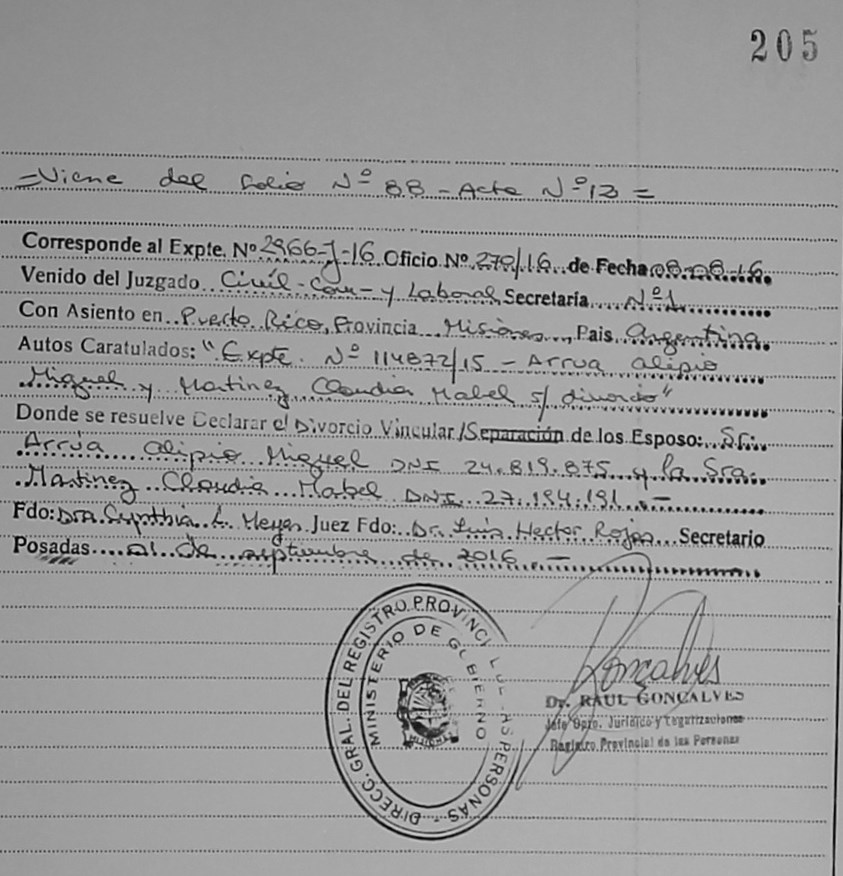 205
=Viene del folio Nº 88 - Acta Nº 13 =
Corresponde al Expte. Nº 2966-J-16 Oficio Nº 270/16 de Fecha 08-08-16
Venido del Juzgado Civil-Com- y Laboral Secretaría Nº1
Con Asiento en Puerto Rico, Provincia Misiones, Pais Argentina
Autos Caratulados: "Expte. Nº 114872/15 - Arrua Alipio
Miguel y Martinez Claudia Mabel s/ divorcio"
Donde se resuelve Declarar el Divorcio Vincular/Separación de los Esposo: Sr.
Arrúa Alipio Miguel DNI 24.819.875 y la Sra.
Martinez Claudia Mabel DNI. 27.194.191.-
Fdo: Dra. Cynthia L. Juez Fdo: Dr. Luis Hector Rojas Secretario
Posadas 01 de septiembre de 2016 -
DIRECC. GRAL. DEL REGISTRO PROVINCI LAS PERSONAS
MINISTERIO DE GOBIERNO
Gonçalves
Dr. RAUL GONÇALVES
Jefe Dpto. Jurídico y Legalizaciones
Registro Provincial de las Personas